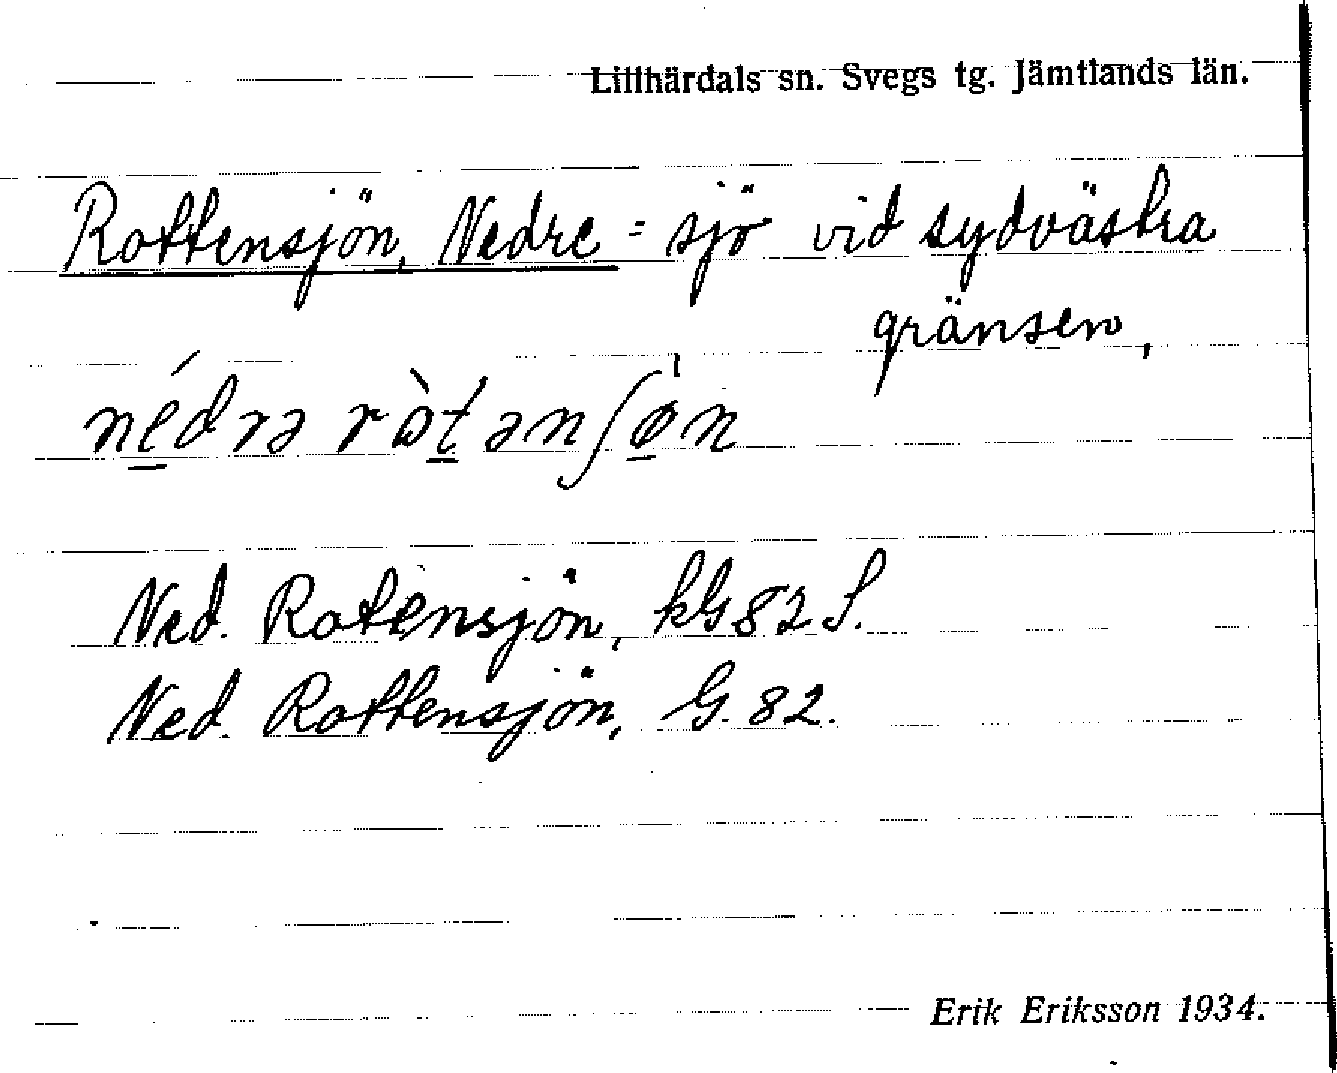 Lillhärdals sn. Svegs tg. Jämtlands län.
Rottensjön, Nedre = sjö vid sydvästra
gränsen,
nédrə ròtənʃøn
Ned. Rotensjön, kG 82 S.
Ned. Rottensjön, G. 82.
Erik Eriksson 1934.